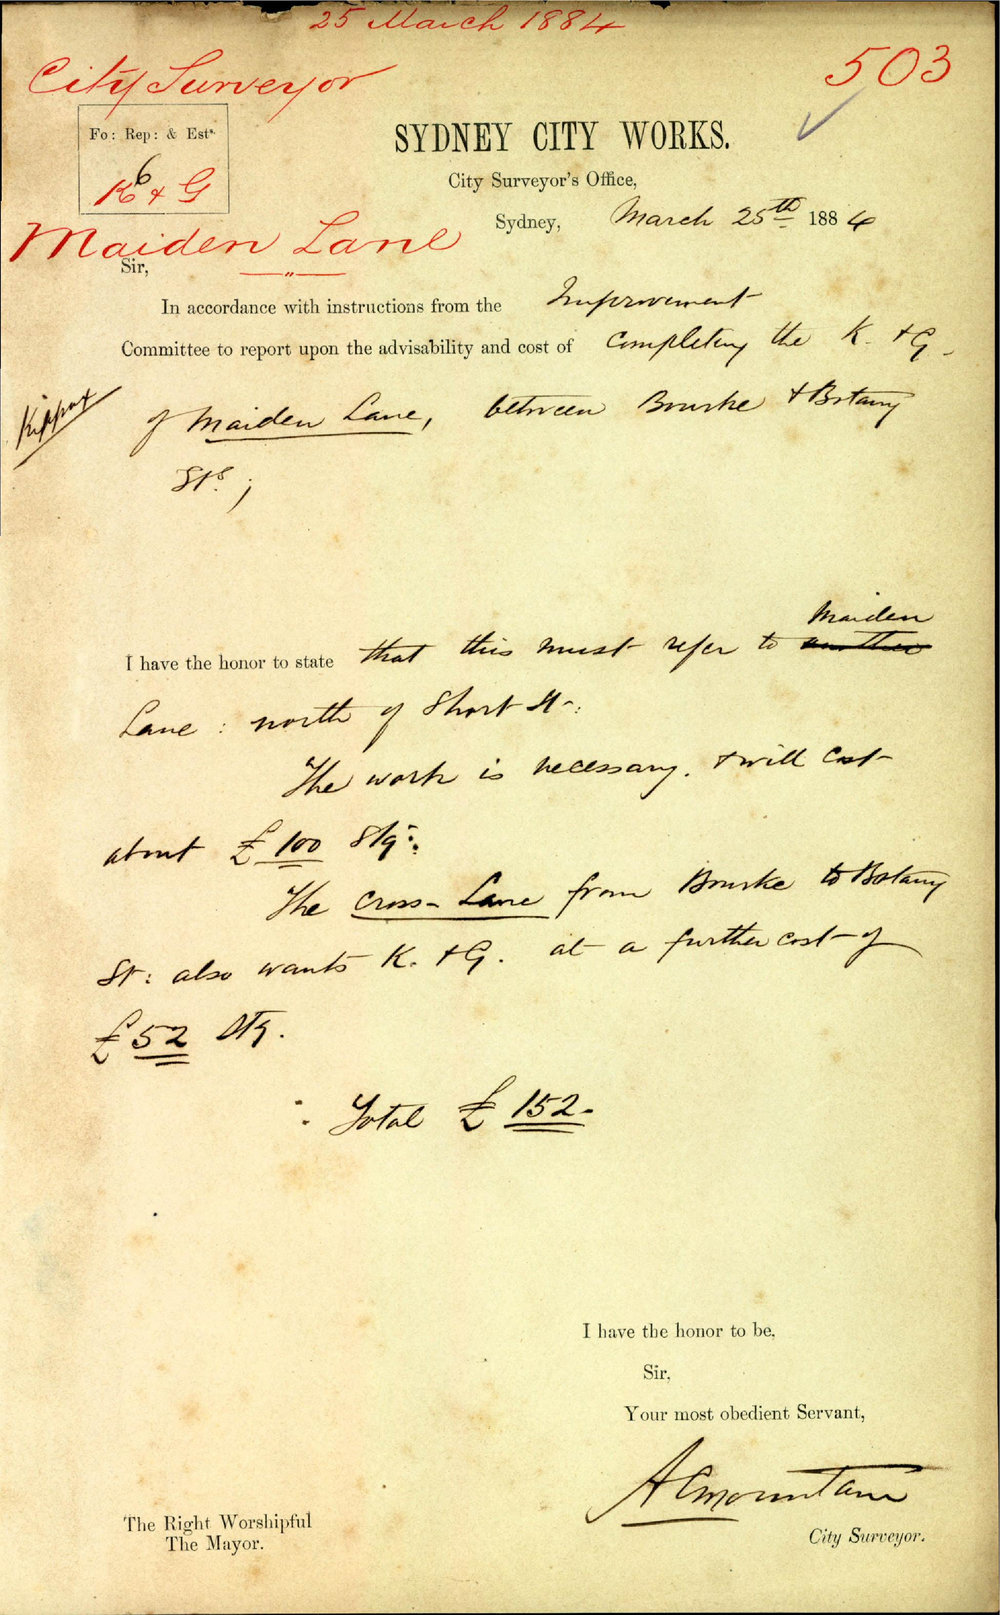 25 March 1884
City Surveyor
503
Fo: Rep: & Est^s.
6
K & G
SYDNEY CITY WORKS.
City Surveyor's Office,
Sydney, March 25th 1884
Maiden Lane
Sir,
In accordance with instructions from the Improvement
Committee to report upon the advisability and cost of completing the K. & G.
Kippax
of Maiden Lane, between Bourke & Botany
Sts. ;
Maiden
I have the honor to state that this must refer to another
Lane : north of Short St:
The work is necessary. & will cost
about £100 Stg:
The cross-Lane from Bourke to Botany
St: also wants K. & G. at a further cost of
£52 Stg.
∴ Total £152.
I have the honor to be,
Sir,
Your most obedient Servant,
A C Mountain
City Surveyor.
The Right Worshipful
The Mayor.